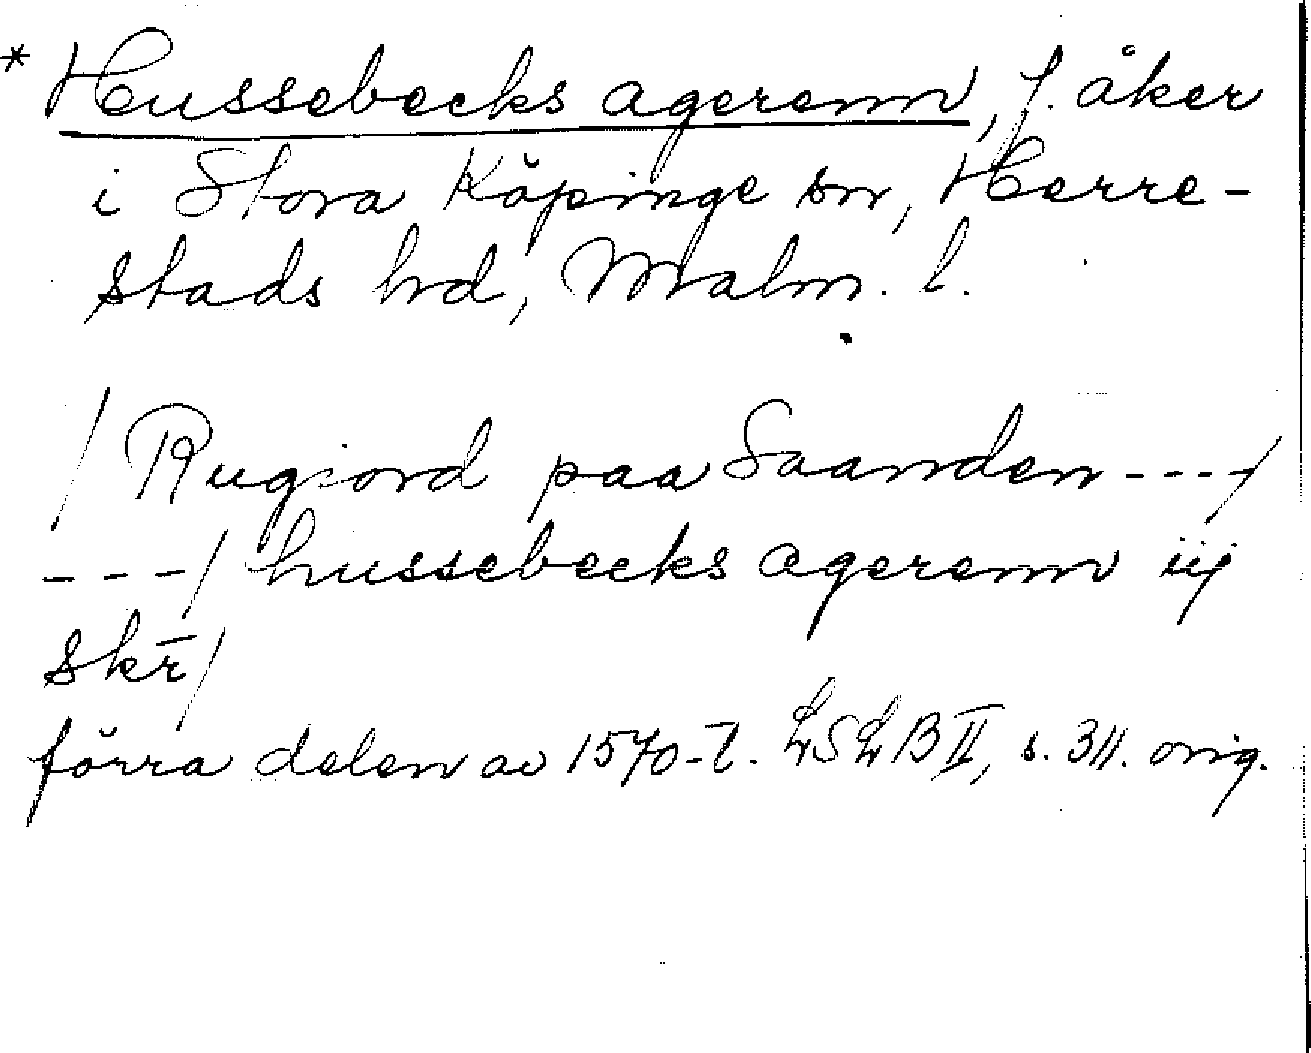 * Hussebecks agerenn, f. åker
i Stora Köpinge sn, Herre-
stads hd, Malm. l.
/ Rugiord paa Saanden ---/
---/ hussebecks agerenn iij
skr̄/
förra delen av 1570-t. LSLB II, s. 311. orig.